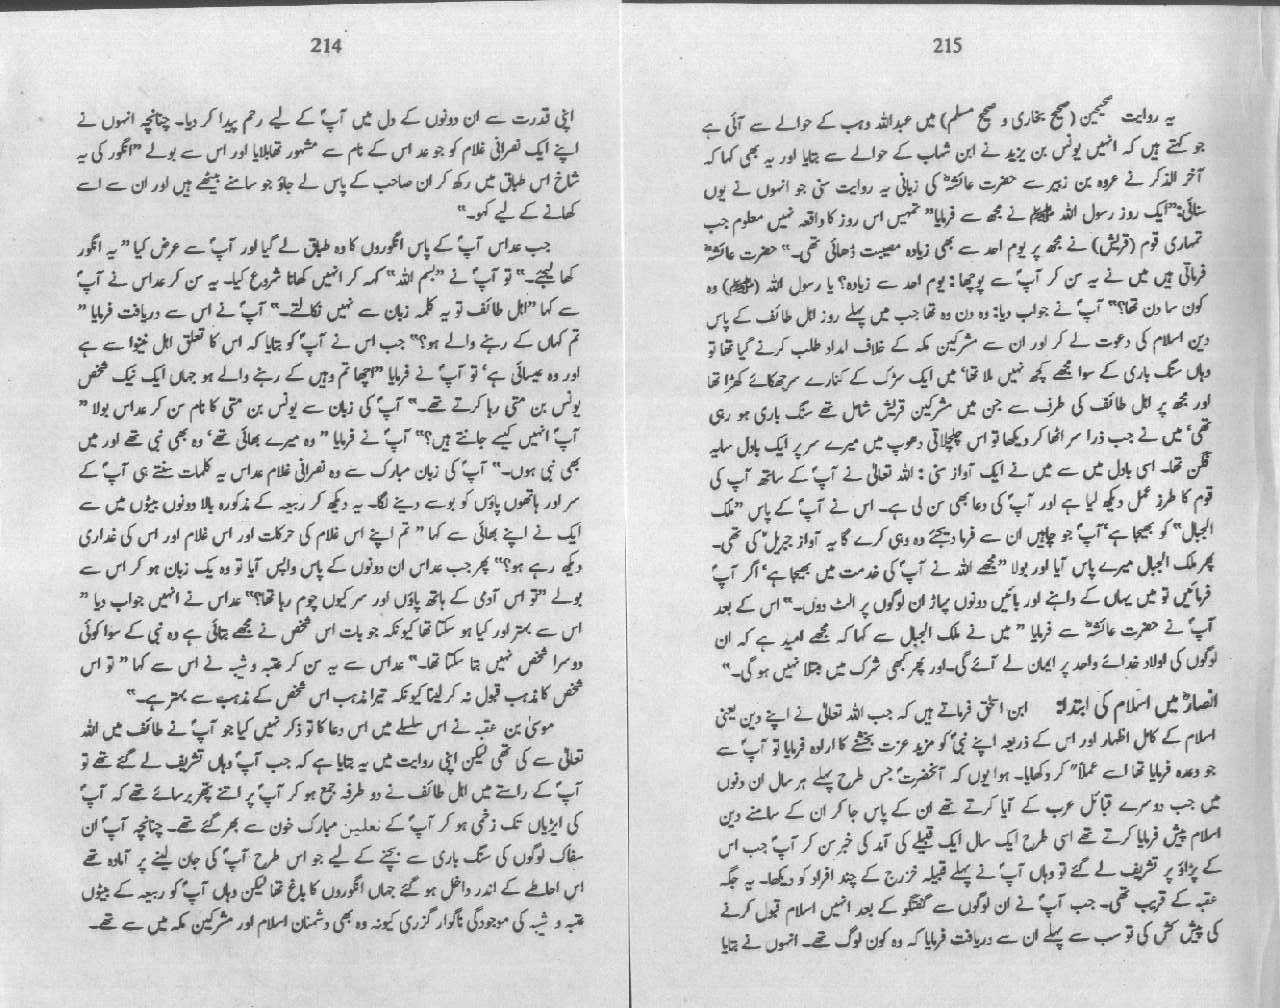 214
اپنی قدرت سے ان دونوں کے دل میں آپؐ کے لیے رحم پیدا کر دیا۔ چنانچہ انہوں نے
اپنے ایک نصرانی غلام کو جو عداس کے نام سے مشہور تھا بلایا اور اس سے بولے "انگور کی یہ
شاخ اس طباق میں رکھ کر ان صاحب کے پاس لے جاؤ جو سامنے بیٹھے ہیں اور ان سے اسے
کھانے کے لیے کہو۔"
جب عداس آپؐ کے پاس انگوروں کا وہ طباق لے گیا اور آپؐ سے عرض کیا "یہ انگور
کھا لیجئے۔" تو آپؐ نے "بسم اللہ" کہہ کر انہیں کھانا شروع کیا۔ یہ سن کر عداس نے آپؐ
سے کہا "اہل طائف تو یہ کلمہ زبان سے نہیں نکالتے۔" آپؐ نے اس سے دریافت فرمایا "
تم کہاں کے رہنے والے ہو؟" جب اس نے آپؐ کو بتایا کہ اس کا تعلق اہل نینوا سے ہے
اور وہ عیسائی ہے' تو آپؐ نے فرمایا "اچھا تم وہیں کے رہنے والے ہو جہاں ایک نیک شخص
یونس بن متی رہا کرتے تھے۔" آپؐ کی زبان سے یونس بن متی کا نام سن کر عداس بولا "
آپؐ انہیں کیسے جانتے ہیں؟" آپؐ نے فرمایا "وہ میرے بھائی تھے' وہ بھی نبی تھے اور میں
بھی نبی ہوں۔" آپؐ کی زبان مبارک سے وہ نصرانی غلام عداس یہ کلمات سنتے ہی آپؐ کے
سر اور ہاتھوں پاؤں کو بوسے دینے لگا۔ یہ دیکھ کر ربیعہ کے مذکورہ بالا دونوں بیٹوں میں سے
ایک نے اپنے بھائی سے کہا "تم اپنے اس غلام کی حرکات اور اس غلام اور اس کی غداری
دیکھ رہے ہو؟" پھر جب عداس ان دونوں کے پاس واپس آیا تو وہ یک زبان ہو کر اس سے
بولے "تو اس آدمی کے ہاتھ پاؤں اور سر کیوں چوم رہا تھا؟" عداس نے انہیں جواب دیا "
اس سے بہتر اور کیا ہو سکتا تھا کیونکہ جو بات اس شخص نے مجھے بتائی ہے وہ نبی کے سوا کوئی
دوسرا شخص نہیں بتا سکتا تھا۔" عداس سے یہ سن کر عتبہ و شیبہ نے اس سے کہا "تو اس
شخص کا مذہب قبول نہ کر لینا کیونکہ تیرا مذہب اس شخص کے مذہب سے بہتر ہے۔"
موسیٰ بن عقبہ نے اس سلسلے میں اس دعا کا تو ذکر نہیں کیا جو آپؐ نے طائف میں اللہ
تعالیٰ سے کی تھی لیکن اپنی روایت میں یہ بتایا ہے کہ جب آپؐ وہاں تشریف لے گئے تھے تو
آپؐ کے راستے میں اہل طائف نے دو طرفہ جمع ہو کر آپؐ پر اتنے پتھر برسائے تھے کہ آپؐ
کی ایڑیاں تک زخمی ہو کر آپؐ کے نعلین مبارک خون سے بھر گئے تھے۔ چنانچہ آپؐ ان
سفاک لوگوں کی سنگ باری سے بچنے کے لیے جو اس طرح آپؐ کی جان لینے پر آمادہ تھے
اس احاطے کے اندر داخل ہو گئے جہاں انگوروں کا باغ تھا لیکن وہاں آپؐ کو ربیعہ کے بیٹوں
عتبہ و شیبہ کی موجودگی ناگوار گزری کیونکہ وہ بھی دشمنان اسلام اور مشرکین مکہ میں سے تھے۔
215
یہ روایت صحیحین (صحیح بخاری و صحیح مسلم) میں عبداللہ وہب کے حوالے سے آئی ہے
جو کہتے ہیں کہ انہیں یونس بن یزید نے ابن شہاب کے حوالے سے بتایا اور یہ بھی کہا کہ
آخر الذکر نے عروہ بن زبیر سے حضرت عائشہؓ کی زبانی یہ روایت سنی جو انہوں نے یوں
سنائی: "ایک روز رسول اللہ ﷺ نے مجھ سے فرمایا" تمہیں اس روز کا واقعہ نہیں معلوم جب
تمہاری قوم (قریش) نے مجھ پر یوم احد سے بھی زیادہ مصیبت ڈھائی تھی۔" حضرت عائشہؓ
فرماتی ہیں میں نے یہ سن کر آپؐ سے پوچھا: یوم احد سے زیادہ؟ یا رسول اللہ (ﷺ) وہ
کون سا دن تھا؟" آپؐ نے جواب دیا: وہ دن وہ تھا جب میں پہلے روز اہل طائف کے پاس
دین اسلام کی دعوت لے کر اور ان سے مشرکین مکہ کے خلاف امداد طلب کرنے گیا تھا تو
وہاں سنگ باری کے سوا مجھے کچھ نہیں ملا تھا' میں ایک سڑک کے کنارے سرجھکائے کھڑا تھا
اور مجھ پر اہل طائف کی طرف سے جن میں مشرکین قریش شامل تھے سنگ باری ہو رہی
تھی' میں نے جب ذرا سر اٹھا کر دیکھا تو اس چلچلاتی دھوپ میں میرے سر پر ایک بادل سایہ
فگن تھا۔ اسی بادل میں سے میں نے ایک آواز سنی: اللہ تعالیٰ نے آپؐ کے ساتھ آپ کی
قوم کا طرز عمل دیکھ لیا ہے اور آپؐ کی دعا بھی سن لی ہے۔ اس نے آپؐ کے پاس "ملک
الجبال" کو بھیجا ہے' آپؐ جو چاہیں ان سے فرما دیجئے وہ وہی کرے گا یہ آواز جبریلؑ کی تھی۔
پھر ملک الجبال میرے پاس آیا اور بولا "مجھے اللہ نے آپؐ کی خدمت میں بھیجا ہے' اگر آپؐ
فرمائیں تو میں یہاں کے داہنے اور بائیں دونوں پہاڑ ان لوگوں پر الٹ دوں۔" اس کے بعد
آپؐ نے حضرت عائشہؓ سے فرمایا "میں نے ملک الجبال سے کہا کہ مجھے امید ہے کہ ان
لوگوں کی اولاد خدائے واحد پر ایمان لے آئے گی۔ اور پھر کبھی شرک میں مبتلا نہیں ہو گی۔"
انصارؓ میں اسلام کی ابتدا: ابن اسحٰق فرماتے ہیں کہ جب اللہ تعالیٰ نے اپنے دین یعنی
اسلام کے کامل اظہار اور اس کے ذریعہ اپنے نبیؐ کو مزید عزت بخشنے کا ارادہ فرمایا تو آپؐ سے
جو وعدہ فرمایا تھا اسے عملاً کر دکھایا۔ ہوا یوں کہ آنحضرتؐ جس طرح پہلے ہر سال ان دنوں
میں جب دوسرے قبائل عرب کے آیا کرتے تھے ان کے پاس جا کر ان کے سامنے دین
اسلام پیش فرمایا کرتے تھے اسی طرح ایک سال ایک قبیلے کی آمد کی خبر سن کر آپؐ جب اس
کے پڑاؤ پر تشریف لے گئے تو وہاں آپؐ نے پہلے قبیلہ خزرج کے چند افراد کو دیکھا۔ یہ جگہ
عقبہ کے قریب تھی۔ جب آپؐ نے ان لوگوں سے گفتگو کے بعد انہیں اسلام قبول کرنے
کی پیش کش کی تو سب سے پہلے ان سے دریافت فرمایا کہ وہ کون لوگ تھے۔ انہوں نے بتایا